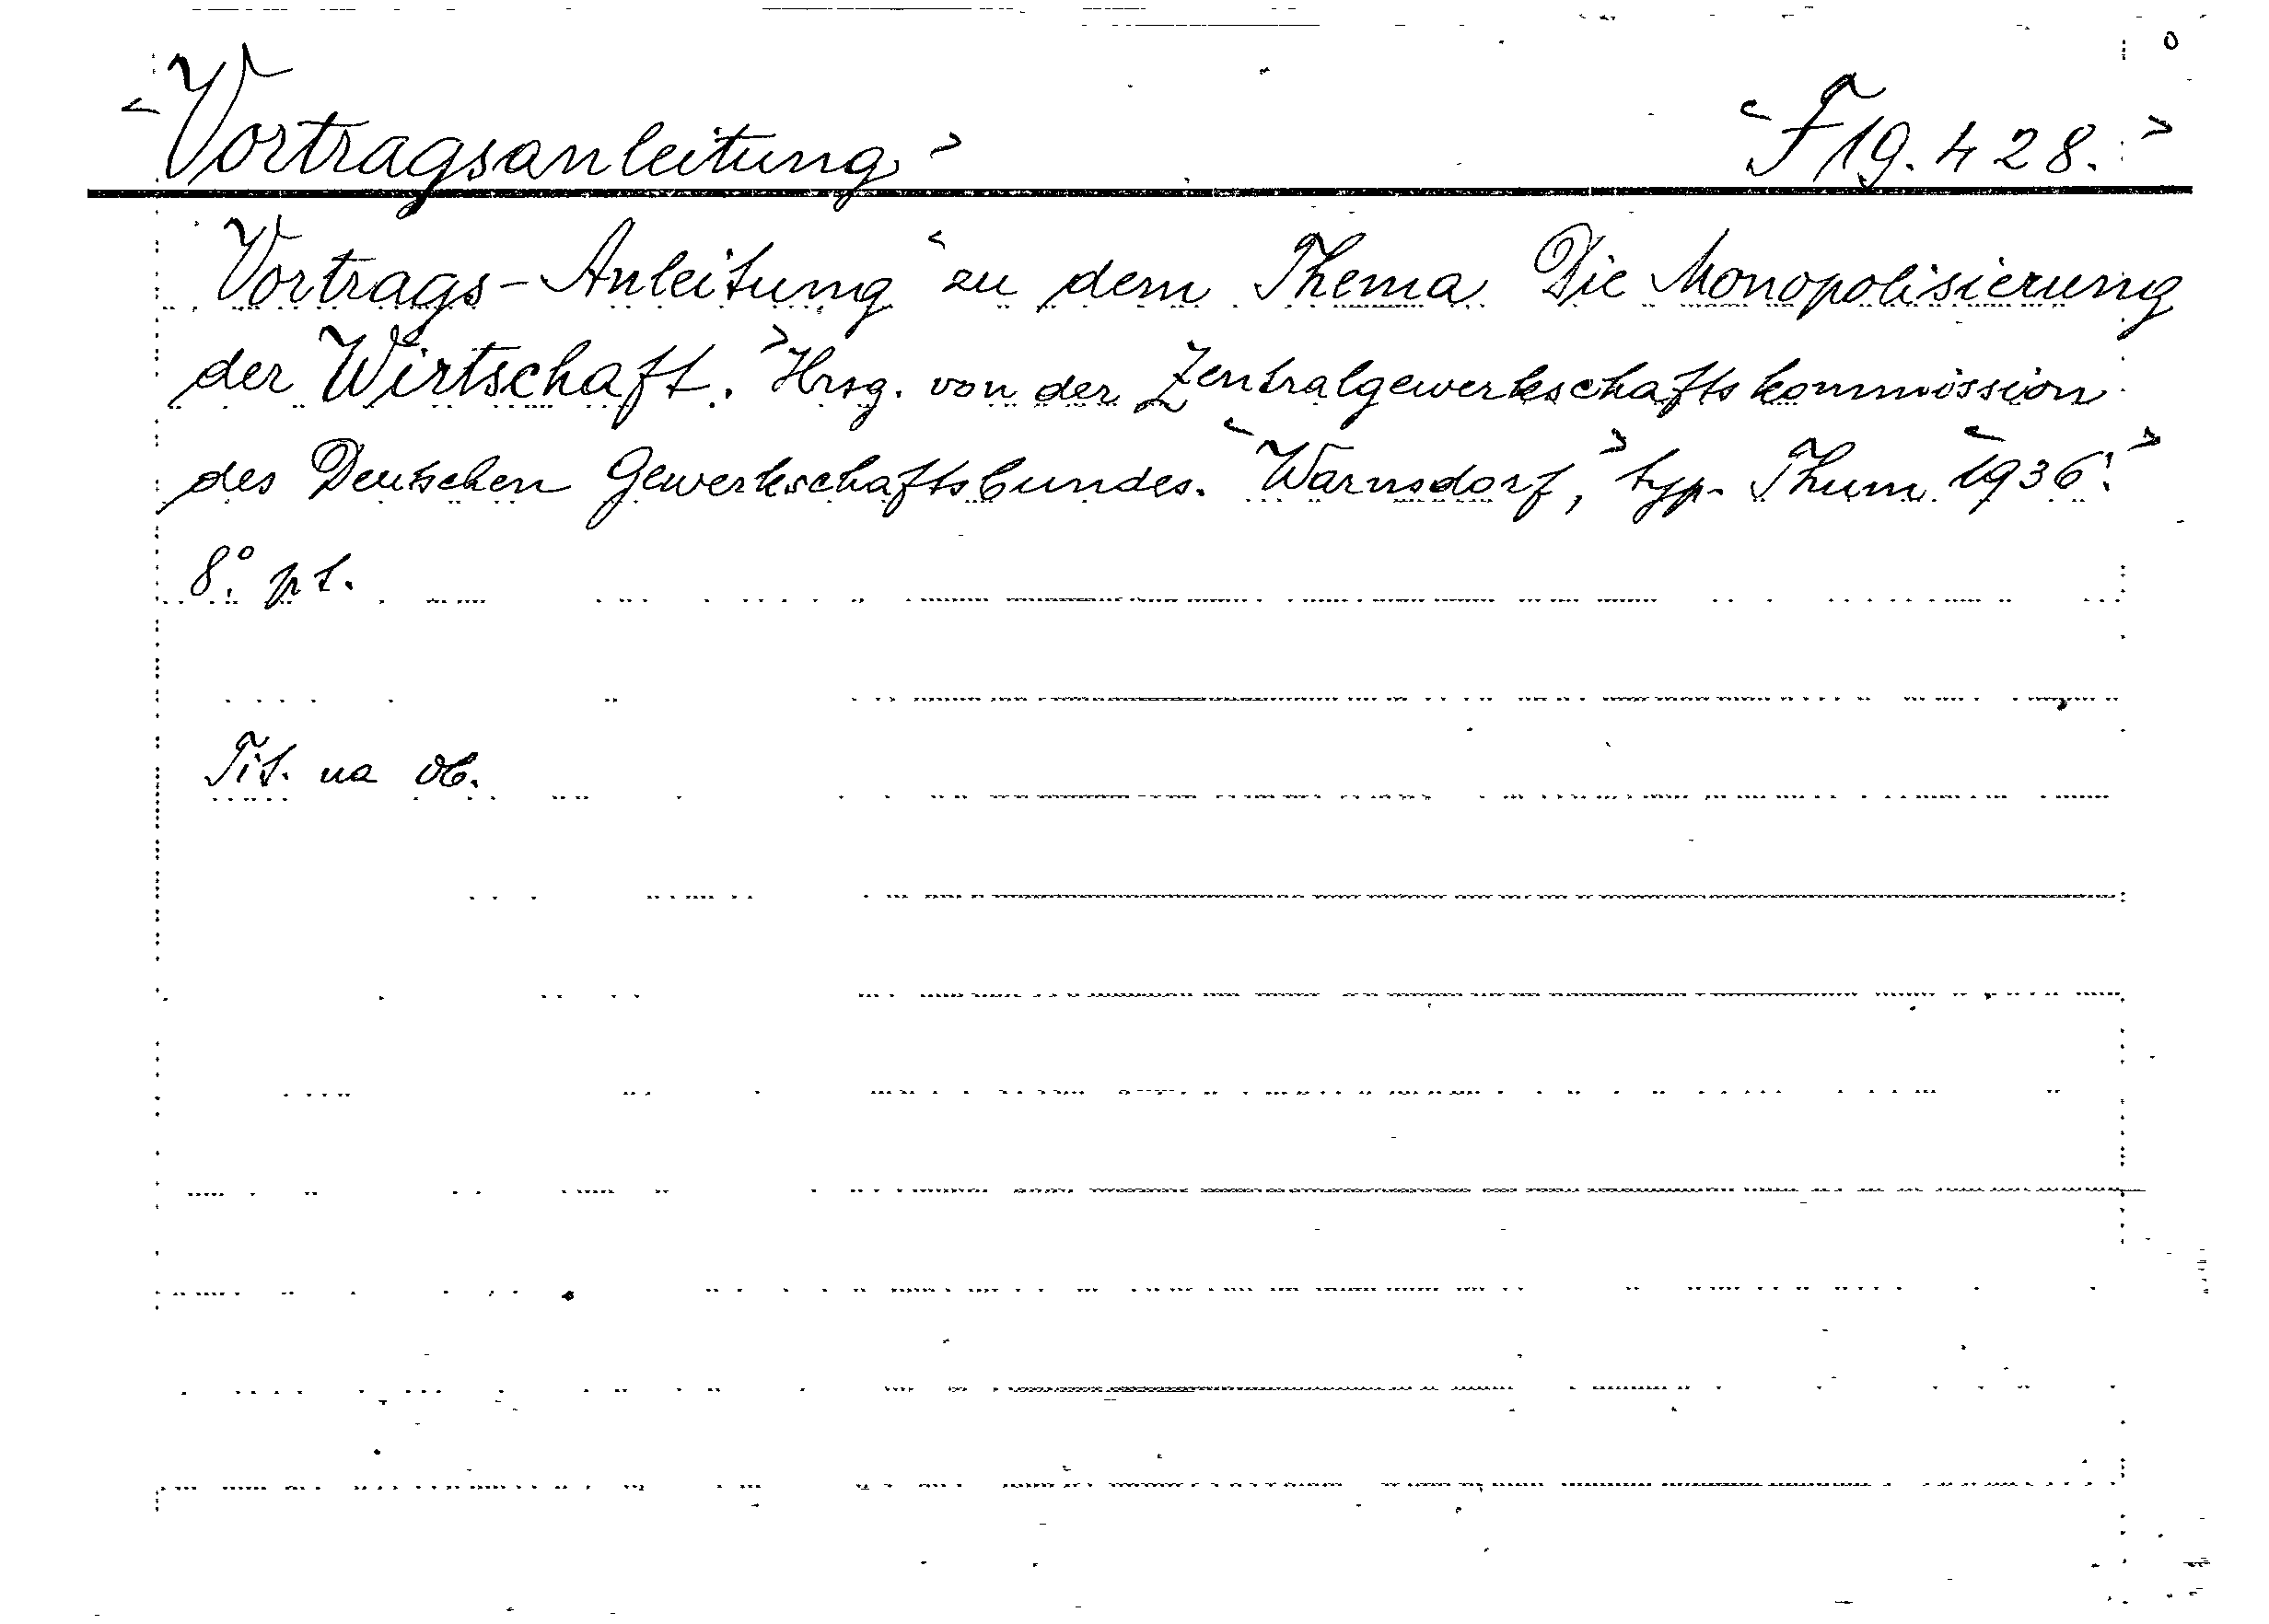 <Vortragsanleitung> <F 19.428.>
Vortrags-Anleitung <zu dem Thema Die Monopolisierung
der Wirtschaft.> Hrsg. von der Zentralgewerkschaftskommission
des Deutschen Gewerkschaftsbundes. <Warnsdorf,> typ. Thum <1936.>
8°. pt.
Tit. na ob.